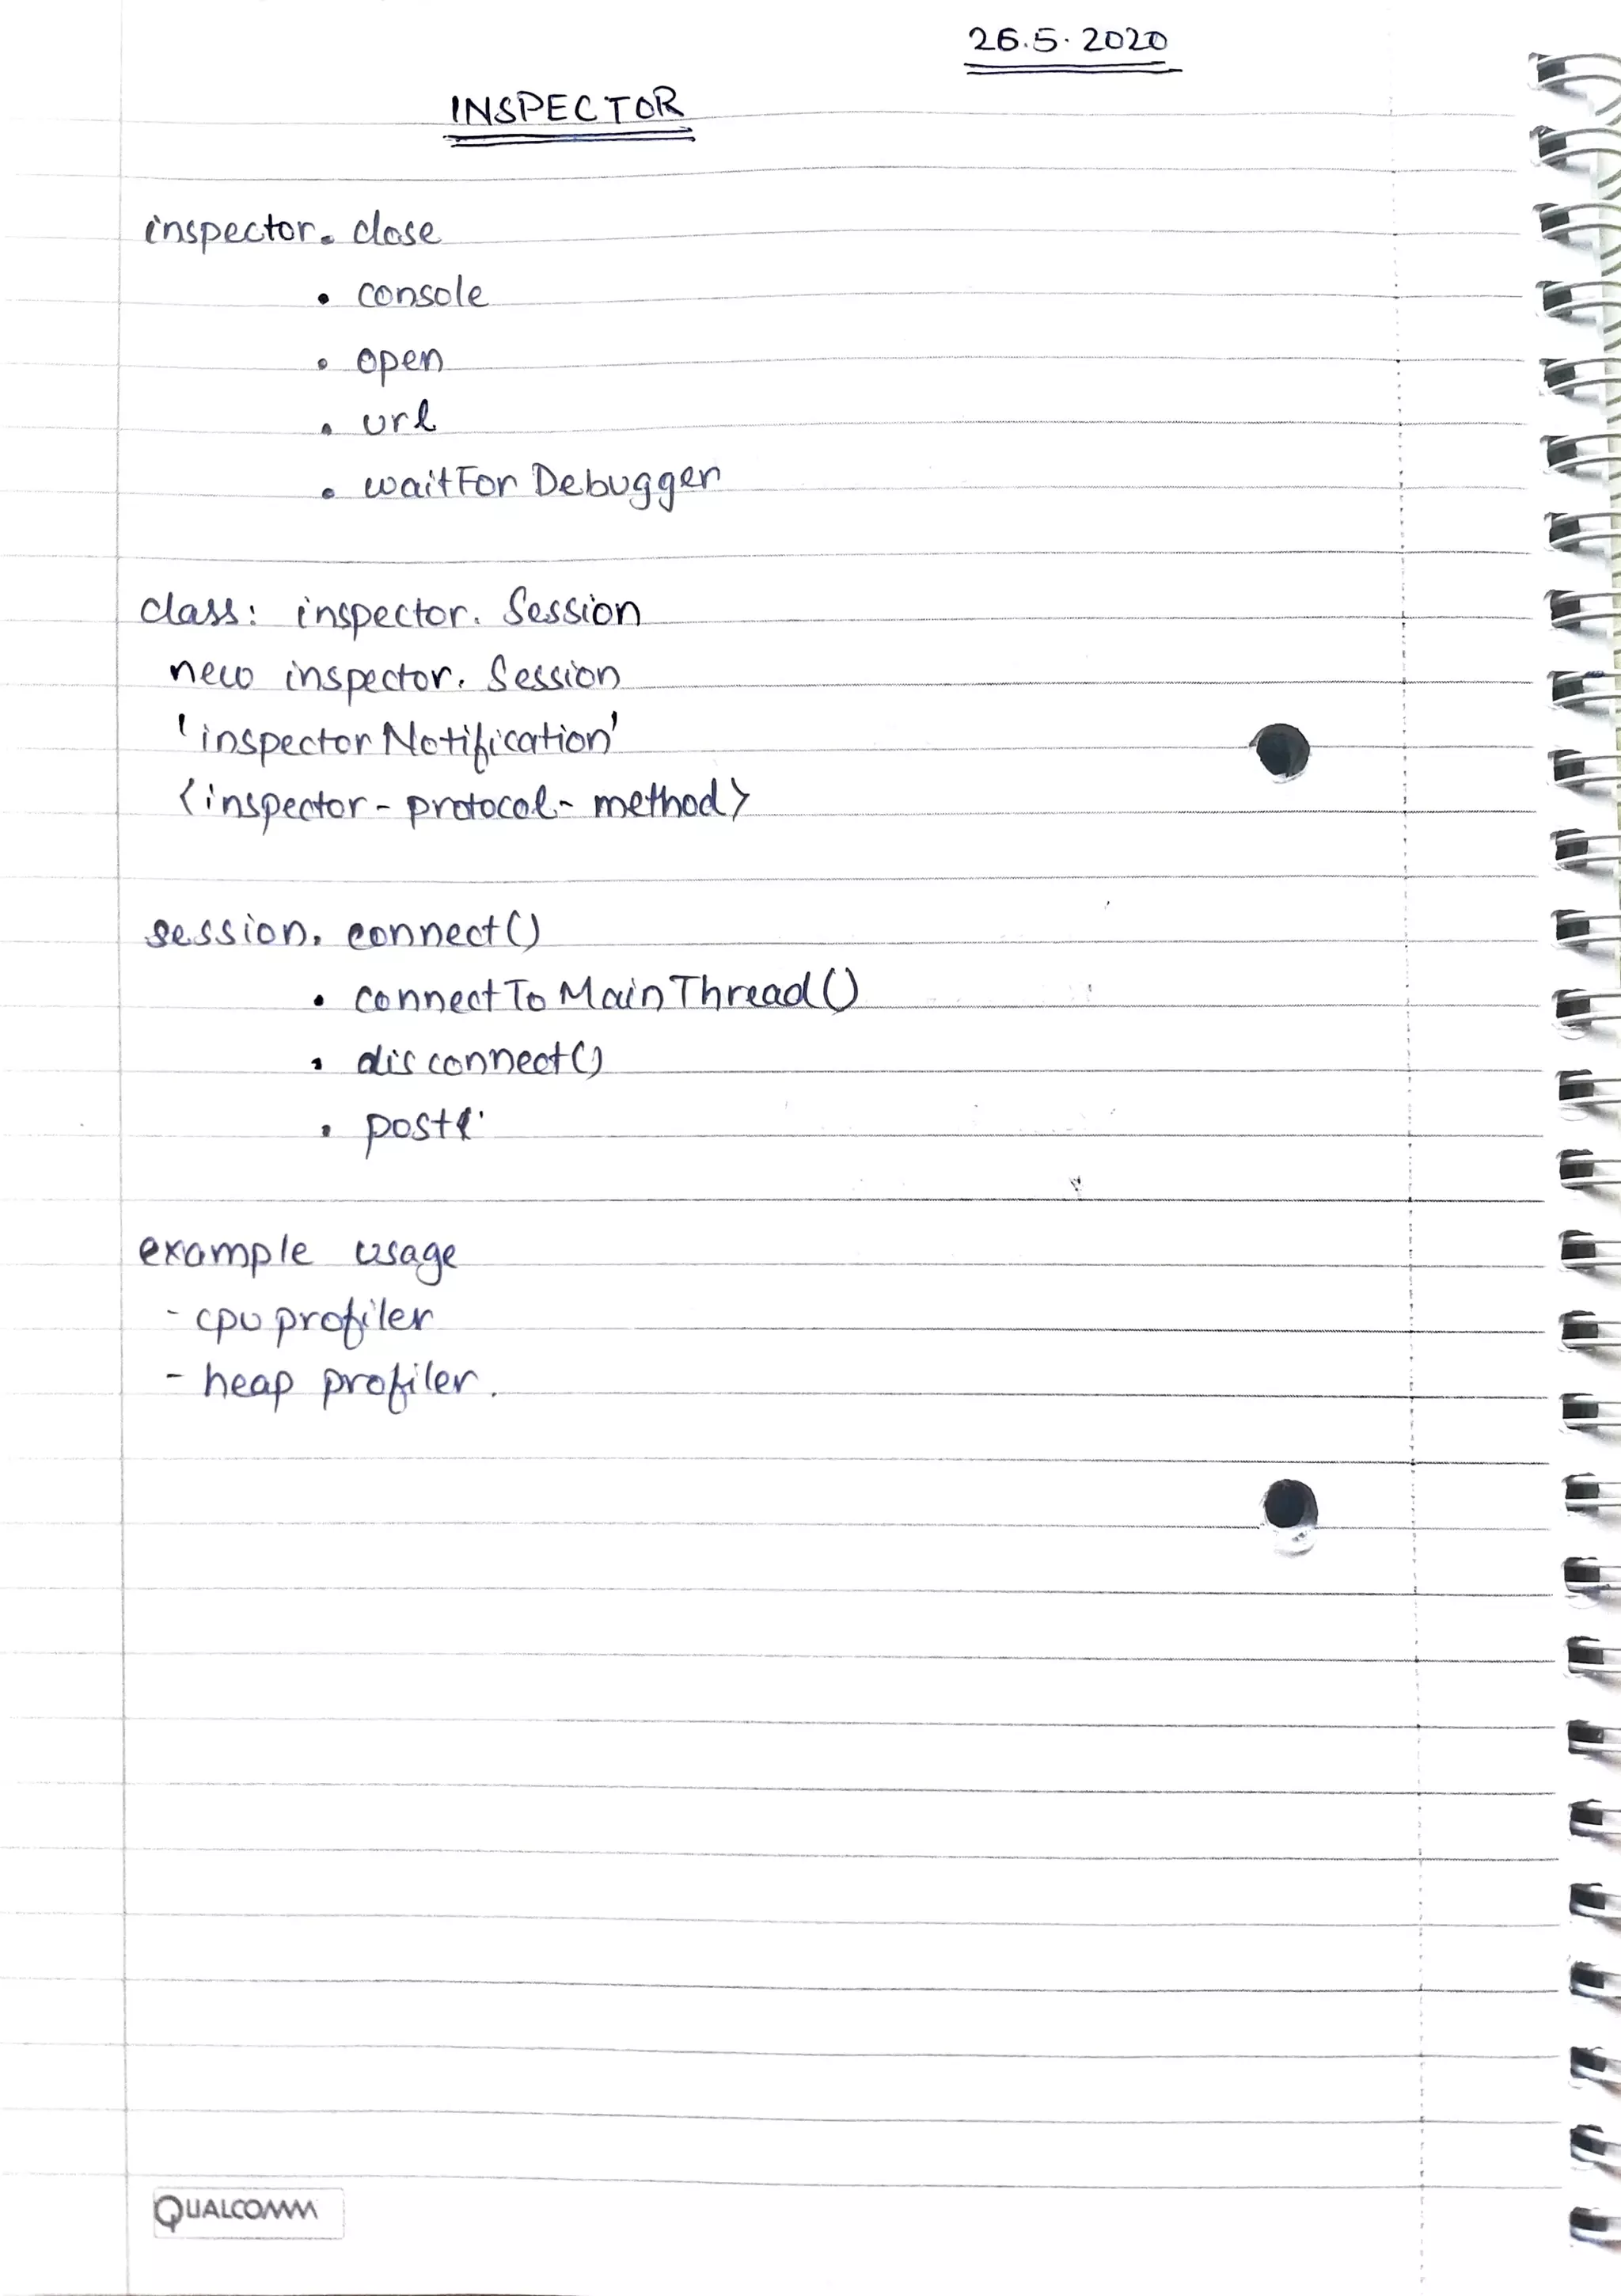 26.5.2020
INSPECTOR
inspector. close
• console
• open
• url
• waitForDebugger
class: inspector. Session
new inspector. Session
'inspectorNotification'
<inspector-protocol-method>
session. connect()
• connectToMainThread()
• disconnect()
• post
example usage
- cpu profiler
- heap profiler.
QUALCOMM